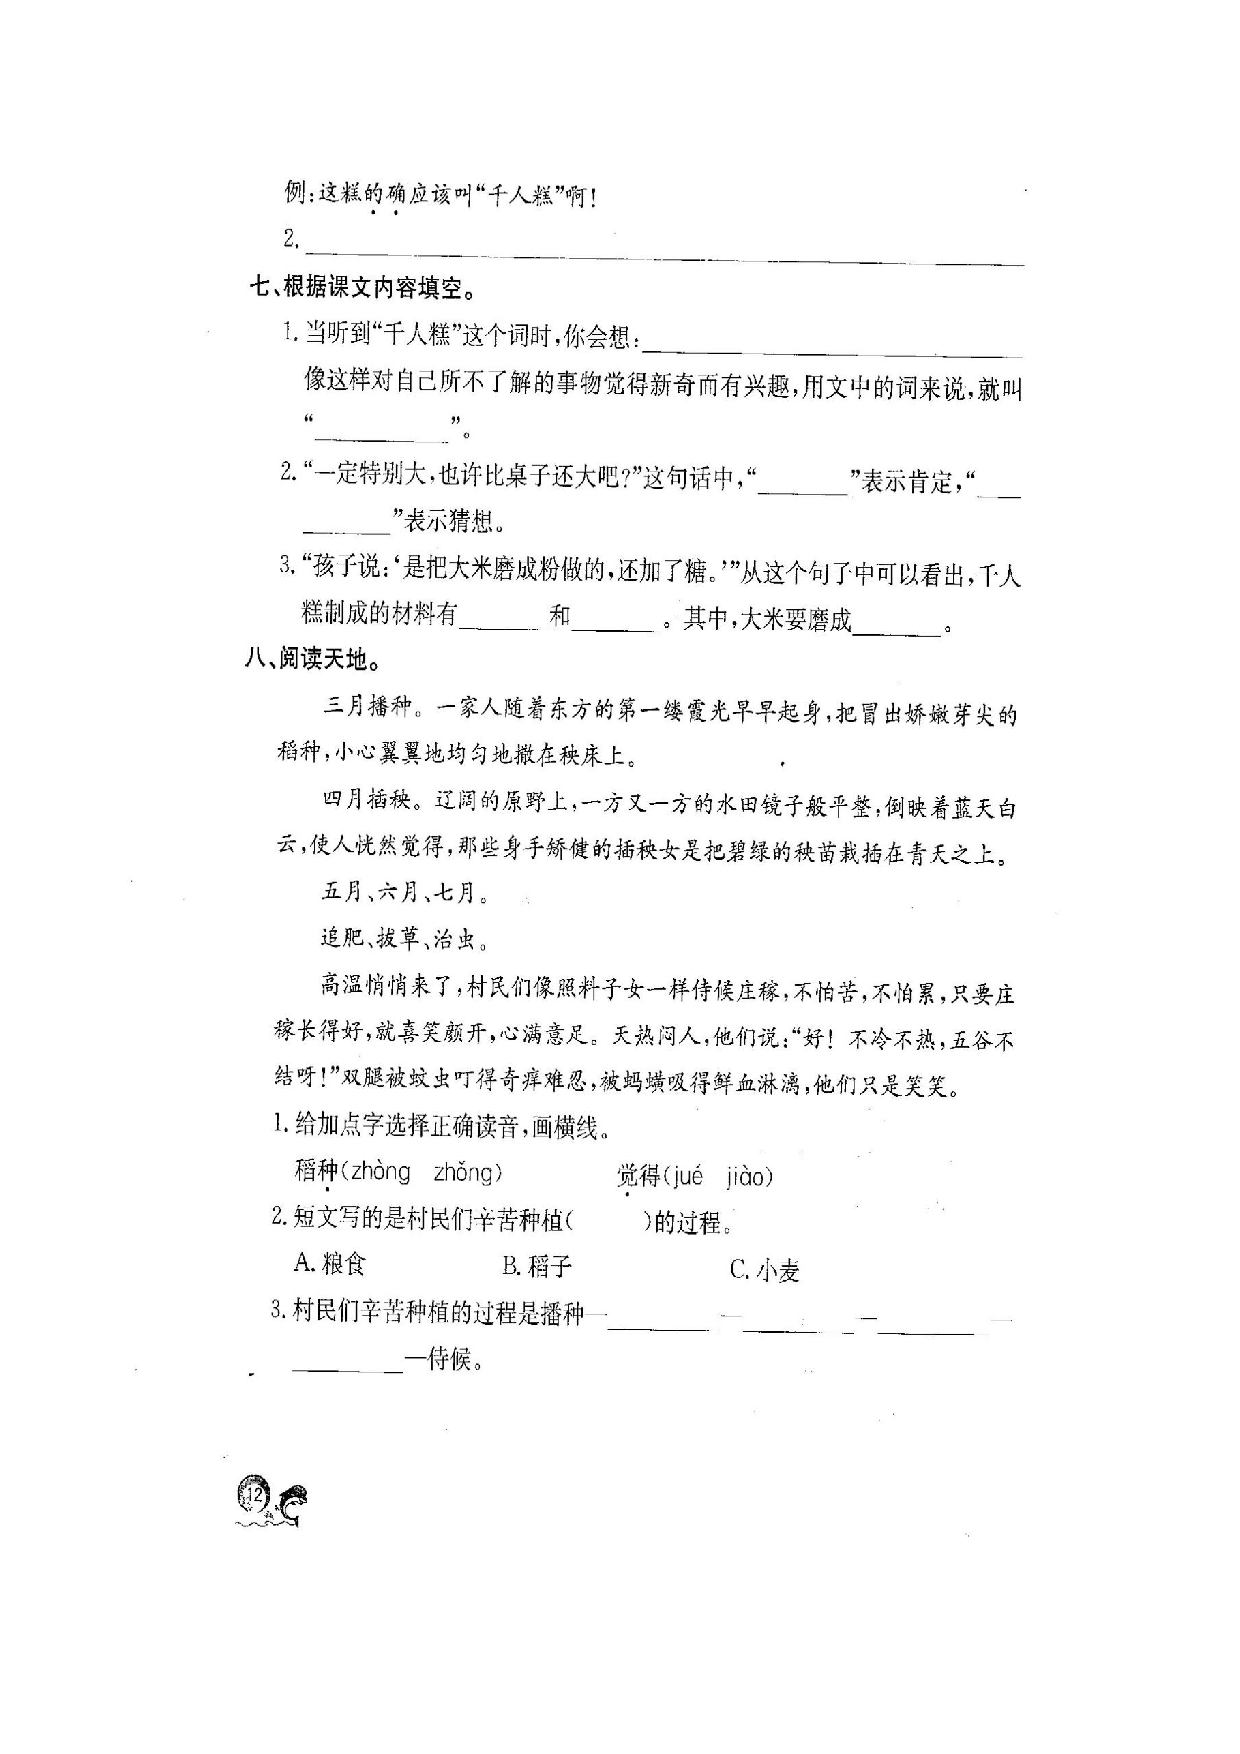 例:这糕的确应该叫“千人糕”啊!
2.
七、根据课文内容填空。
1. 当听到“千人糕”这个词时,你会想:
像这样对自己所不了解的事物觉得新奇而有兴趣,用文中的词来说,就叫
“________”。
2. “一定特别大,也许比桌子还大吧?”这句话中,“______”表示肯定,“___
______”表示猜想。
3. “孩子说:‘是把大米磨成粉做的,还加了糖。’”从这个句子中可以看出,千人
糕制成的材料有______和______。其中,大米要磨成______。
八、阅读天地。
三月播种。一家人随着东方的第一缕霞光早早起身,把冒出娇嫩芽尖的
稻种,小心翼翼地均匀地撒在秧床上。
四月插秧。辽阔的原野上,一方又一方的水田镜子般平整,倒映着蓝天白
云,使人恍然觉得,那些身手矫健的插秧女是把碧绿的秧苗栽插在青天之上。
五月、六月、七月。
追肥、拔草、治虫。
高温悄悄来了,村民们像照料子女一样侍候庄稼,不怕苦,不怕累,只要庄
稼长得好,就喜笑颜开,心满意足。天热闷人,他们说:“好! 不冷不热,五谷不
结呀!”双腿被蚊虫叮得奇痒难忍,被蚂蟥吸得鲜血淋漓,他们只是笑笑。
1. 给加点字选择正确读音,画横线。
稻种(zhòng zhǒng) 觉得(jué jiào)
2. 短文写的是村民们辛苦种植( )的过程。
A. 粮食 B. 稻子 C. 小麦
3. 村民们辛苦种植的过程是播种—______—______—______—
______—侍候。
12